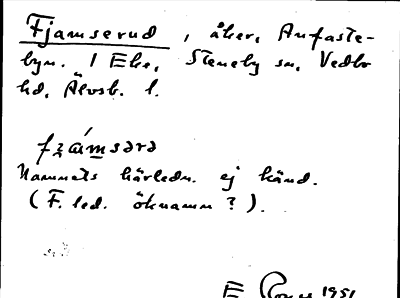 Fjamserud, åker, Anfaste-
byn. 1 Eke, Steneby sn, Vedbo
hd, Älvsb. l.
fʒámsərə
Namnets härledn. ej känd.
(F. led. öknamn?).
E 1951